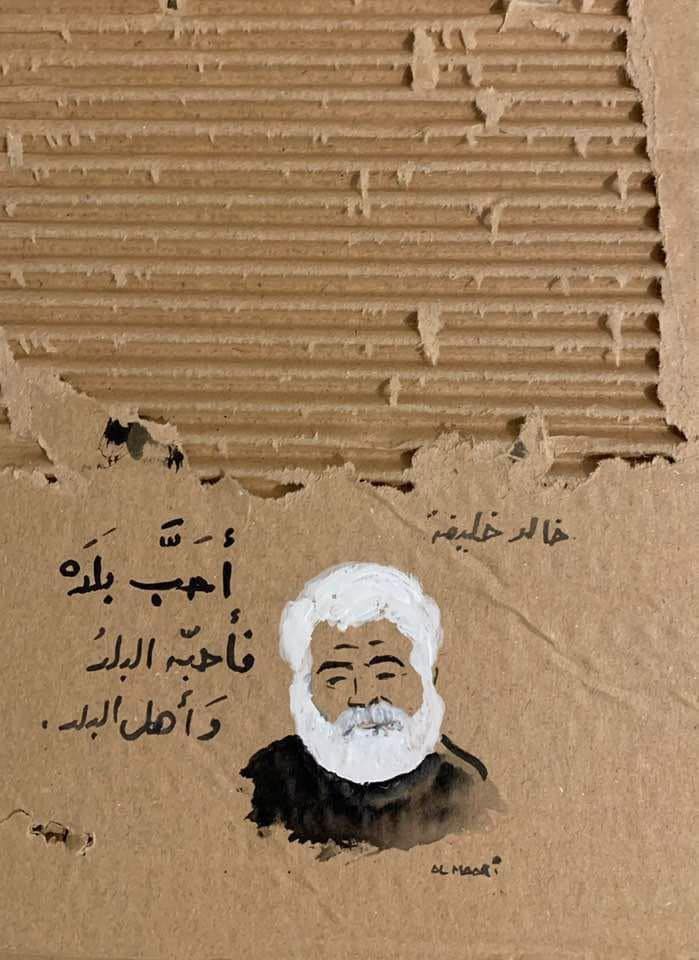 خالد خليفة
أَحَبَّ بَلَدَه
فأَحبّه البلدُ
وَأهل البلد.
AL MAARi